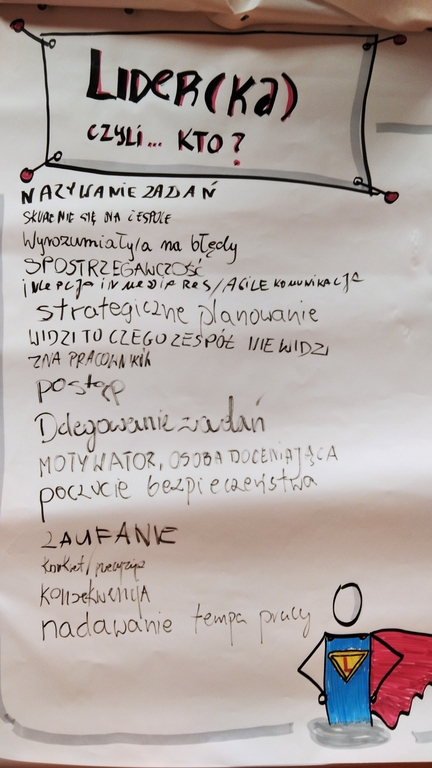 LIDER(KA)
CZYLI... KTO?
NAZYWANIE ZADAŃ
SKUPIENIE SIĘ NA ZESPOLE
Wyrozumiały/a na błędy
SPOSTRZEGAWCZOŚĆ
IN MEDIA RES/AGILE KOMUNIKACJA
strategiczne planowanie
WIDZI TO CZEGO ZESPÓŁ NIE WIDZI
ZNA PRACOWNIKA
postęp
Delegowanie zadań
MOTYWATOR, OSOBA DOCENIAJĄCA
poczucie bezpieczeństwa
ZAUFANIE
konkret/precyzja
KONSEKWENCJA
nadawanie tempa pracy
L